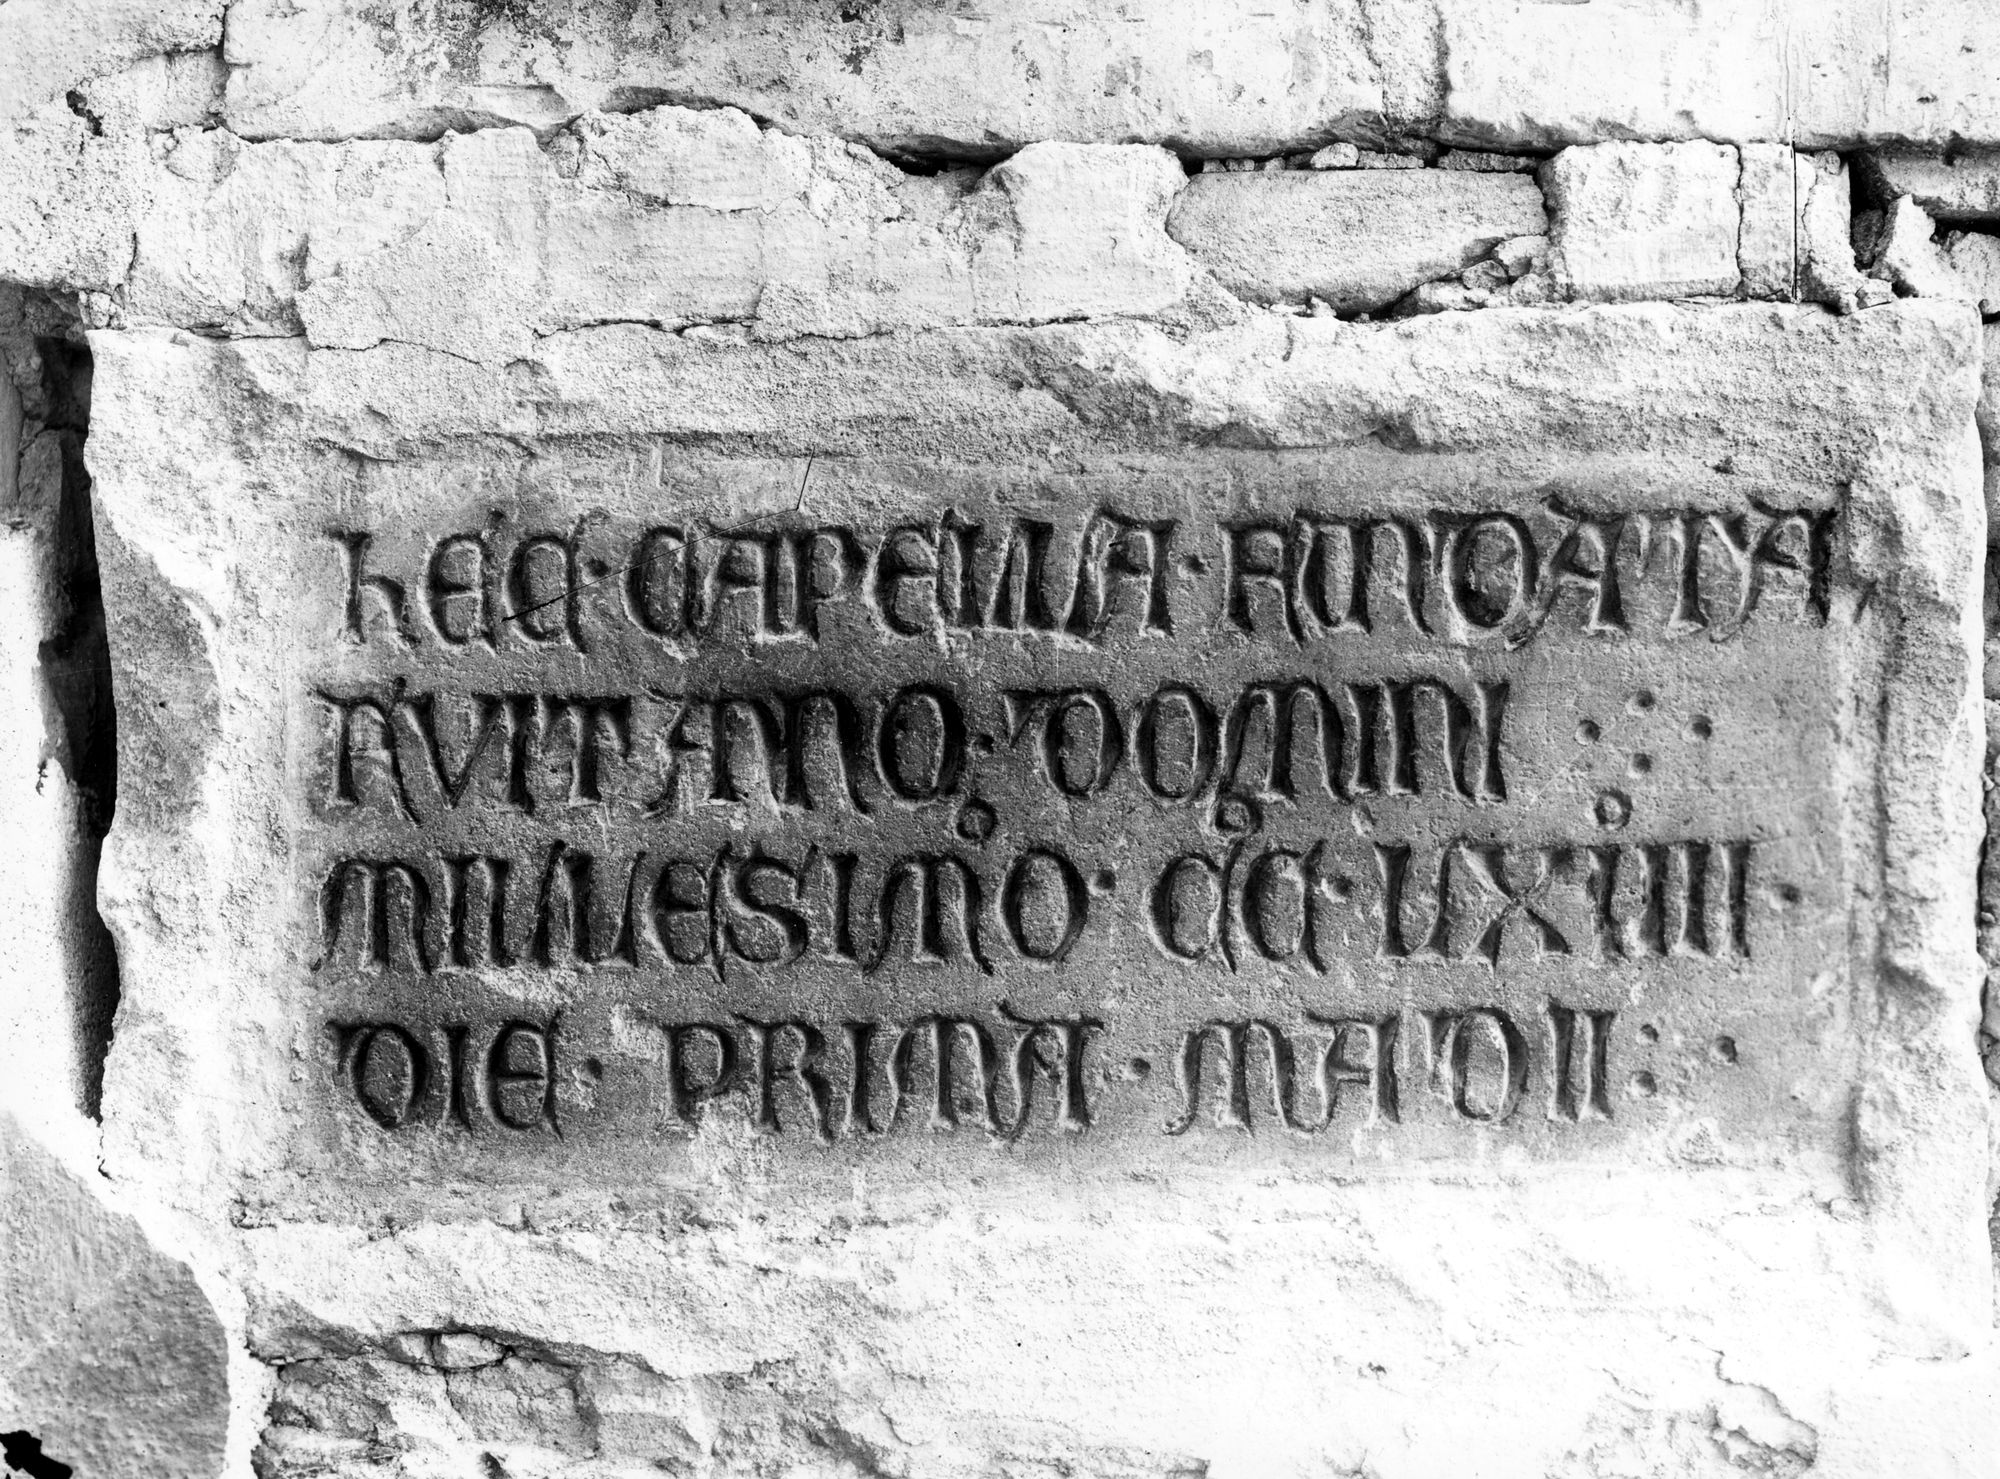 hEC · CAPELLA · FUNDATA
FVIT ANO · DOMINI
MILLESIMO · CC° · LXIIII° ·
DIE · PRIMA · MADII